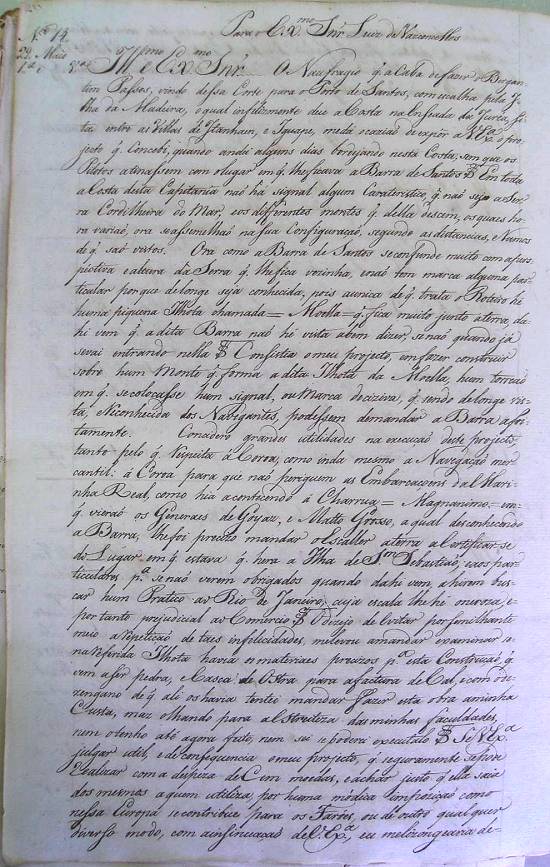 N.º 14.
Para o Ex.mo Snr Luiz de Vasconcellos
22 Maio
Ill.mo e Ex.mo Snr. O Naufragio q. acaba de fazer o Bergan-
tim Passos, vindo dessa Corte para o Porto de Santos, com escalha pela I-
lha da Madeira, o qual infelismente deu a Costa na Enseada da Juria, si-
ta entre as Villas de Itanhaen, e Iguape, me da ocaziaõ de expor a V. Ex.a o pro-
jecto q. Concebi, quando andei alguns dias bordejando nesta Costa, sem que os
Pilotos atinassem com o lugar em q. lhe ficava a Barra de Santos Em toda
a Costa desta Capitania naõ ha signal algum Carateristico, q. naõ seja a Ser-
ra Cordilheira do Mar, e os differentes montes q. della descem, os quaes ho-
ra variaõ, ora se assemelhaõ na sua Configuraçaõ, segundo as distancias, e Rumos
de q. saõ vistos. Ora como a Barra de Santos se confunde muito com a pers-
pectiva e altura da Serra q. lhe fica vezinha, e naõ tem marca alguma par-
ticular porque de longe seja conhecida, pois a unica de q. trata o Roteiro hé
huma piquena Ilhota chamada = Moella = q. fica muito junto a terra, da-
hi vem q. a dita Barra naõ hé vista a bem dizer, se naõ quando já
se vai entrando nella Consistia o meu projecto, em fazer construir
sobre hum Monte q. forma a dita Ilhota da Moella, hum torreaõ
em q. se colocasse hum signal, ou Marca deceziva, q. sendo de longe vis-
ta, e Reconhecida dos Navegantes, podessem demandar a Barra afoi-
tamente. Considero grandes utilidades na execuçaõ deste projecto,
tanto pelo q. Respeita á Coroa, como inda mesmo a Navegaçaõ mer-
cantil: á Coroa para que naõ periguem as Embarcaçoens da Mari-
nha Real, como hia acontecendo á Charrua = Magnanimo = em-
q. vieraõ os Generaes de Goyaz, e Matto Grosso, a qual desconhecendo
a Barra, lhe foi precizo mandar o Escaller a terra a Certificar-se
do Lugar em q. estava q. hera a Ilha de S.m Sebastiaõ, e aos par-
ticulares p.a se naõ verem obrigados quando dahi vem, a hirem bus-
car hum Pratico ao Rio de Janeiro, cuja escala lhe hé oneroza, e
por tanto prejudicial ao Comercio O dezejo de Evitar por semilhante
meio a repetiçaõ de taes infelicidades, me levou a mandar examinar se
na referida Ilhota havia os materiaes precizos p.a esta Construçaõ, q.
vem a ser pedra, e Casca de Ostra para a factura de Cal, e com o de-
zengano de q. ali os havia tentei mandar fazer esta obra a minha
Custa, mas olhando para a Estreiteza das minhas faculdades,
nem o tenho até agora feito, nem sei se poderei executalo Se V. Ex.a
julgar util, e de consequencia o meu projecto, q. seguramente se pode
realizar com a despeza de Cem moedas, e achar justo q. ella saia
dos mesmos a quem utiliza, por huma módica impoziçaõ como
nessa Europa se contribue para os Faróes, ou de outro qualquer
diverso modo, com a insinuaçaõ de V. Ex.a, eu me lizongearia de-